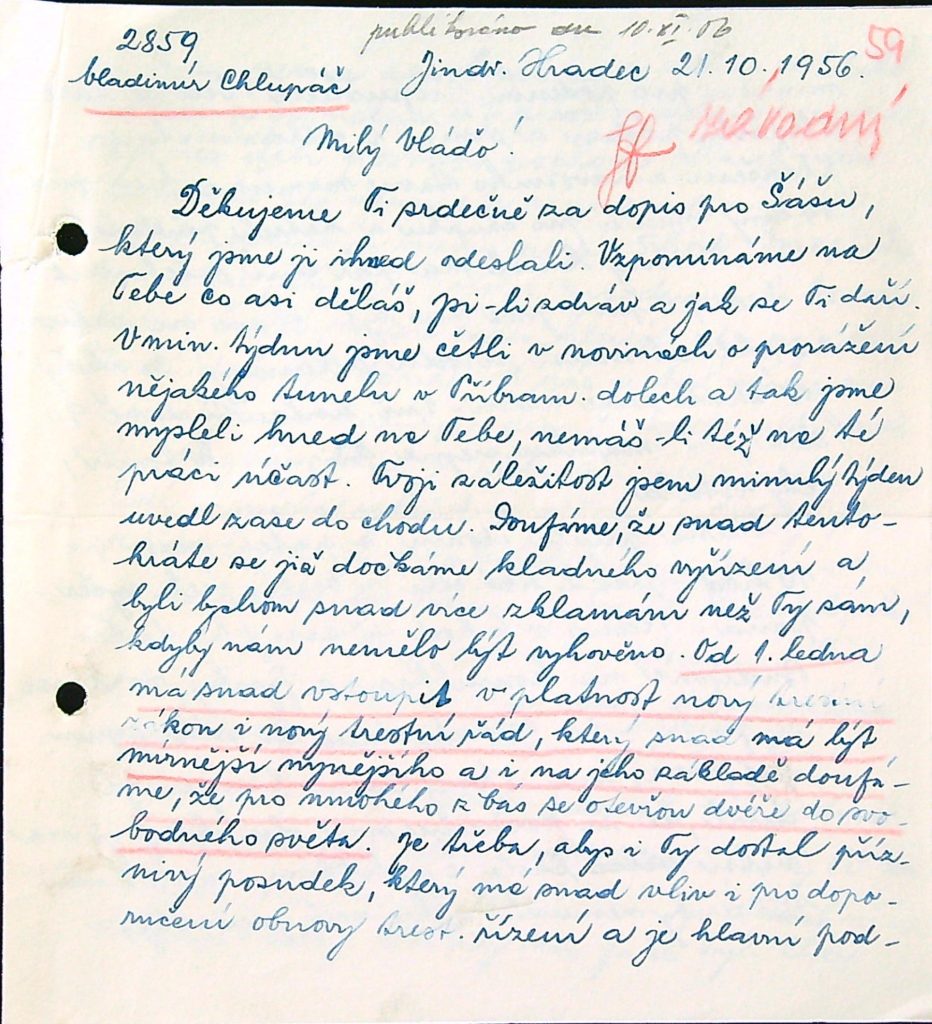 publikováno dne 10. XI. 06
2859
59
Vladimír Chlupáč
Jindř. Hradec 21. 10. 1956.
závadný
Milý Vláďo!
Děkujeme Ti srdečně za dopis pro Šášu,
který jsme jí ihned odeslali. Vzpomínáme na
Tebe co asi děláš, jsi-li zdráv a jak se Ti daří.
V min. týdnu jsme četli v novinách o provážení
nějakého tunelu v Příbram. dolech a tak jsme
mysleli hned na Tebe, nemáš-li též na té
práci účast. Tvoji záležitost jsem minulý týden
uvedl zase do chodu. Doufáme, že snad tento-
kráte se již dočkáme kladného vyřízení a
byli bychom snad více zklamáni než Ty sám,
kdyby nám nemělo být vyhověno. Od 1. ledna
má snad vstoupit v platnost nový trestní
zákon i nový trestní řád, který snad má být
mírnější nynějšího a i na jeho základě doufá-
me, že pro mnohého z Vás se otevřou dvéře do svo-
bodného světa. Je třeba, abys i Ty dostal příz-
nivý posudek, který má snad vliv i pro dopo-
ručení obnovy trest. řízení a je hlavní pod-